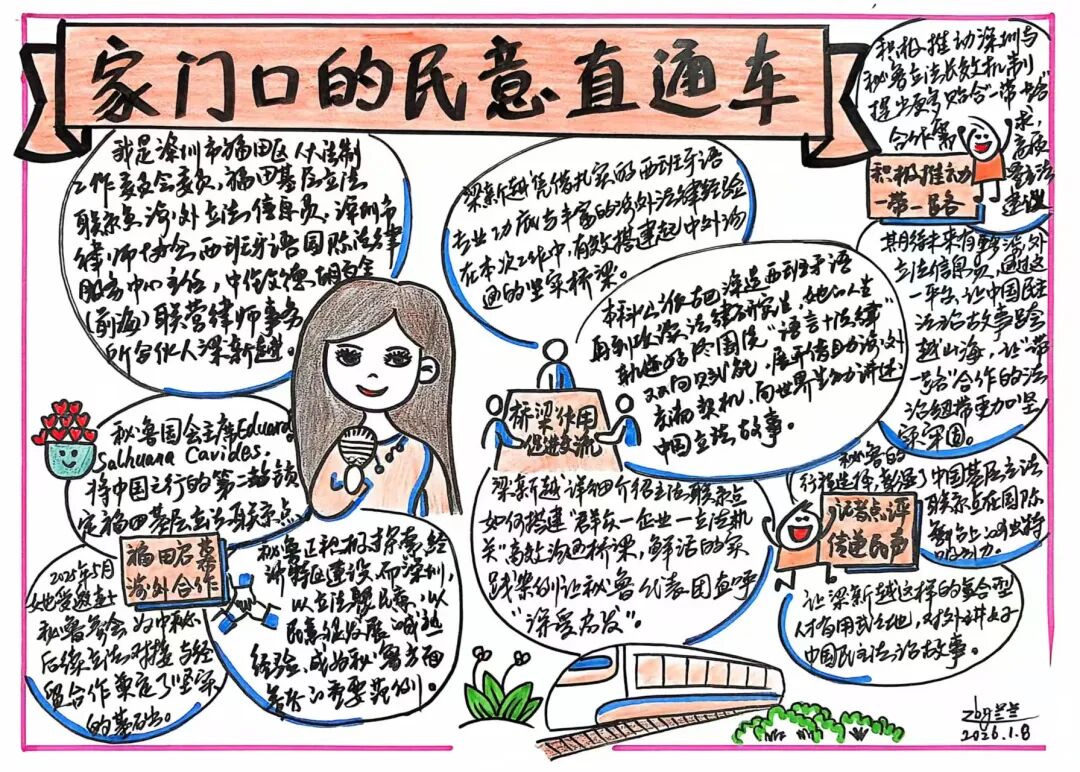 家门口的民意直通车
我是深圳市福田区人大法制
工作委员会委员,福田基层立法
联系点涉外立法信息员,深圳市
律师协会西班牙语国际法律
服务中心主任,中伦文德胡百全
(前海)联营律师事务
所合伙人梁新越。
秘鲁国会主席Eduard
Salhuana Cavides.
将中国之行的第一站锁
定福田基层立法联系点
福田启蒙
涉外合作
2025年5月
她受邀赴
秘鲁参会 为中秘
后续立法对接与经
贸合作奠定了坚实
的基础。
秘鲁正积极探索经
济特区建设,而深圳,
以立法聚民意,以
民意促发展
经验,成为秘鲁方面
的重要范例。
梁新越凭借扎实的西班牙语
专业功底与丰富的涉外法律经验
在本次工作中,有效搭建起中外沟
通的坚实桥梁。
本科
再到攻读法律研究生,她的人生
轨迹始终围绕“语言+法律”
双向赋能,
交流契机,向世界生动讲述
中国立法故事。
桥梁作用
促进交流
梁新越详细介绍立法联系点
如何搭建“群众—企业—立法机
关”高效沟通桥梁,鲜活的实
践案例让秘鲁代表团直呼
“深受启发”。
积极推动深圳与
秘鲁立法长效机制
提出更多贴合“一带一路”
合作需求,
高质
立法
建议
积极推动
一带一路
期待未来有更多涉外
立法信息员,通过这
一平台,让中国民主
法治故事跨
越山海,让“一带
一路”合作的法
治纽带更加坚
实牢固。
秘鲁的
行程选择,彰显了中国基层立法
联系点在国际
舞台上的独特
吸引力。
记者点评
传递民声
让梁新越这样的复合型
人才有用武之地,对外讲好
中国民主法治故事。
2026.1.8